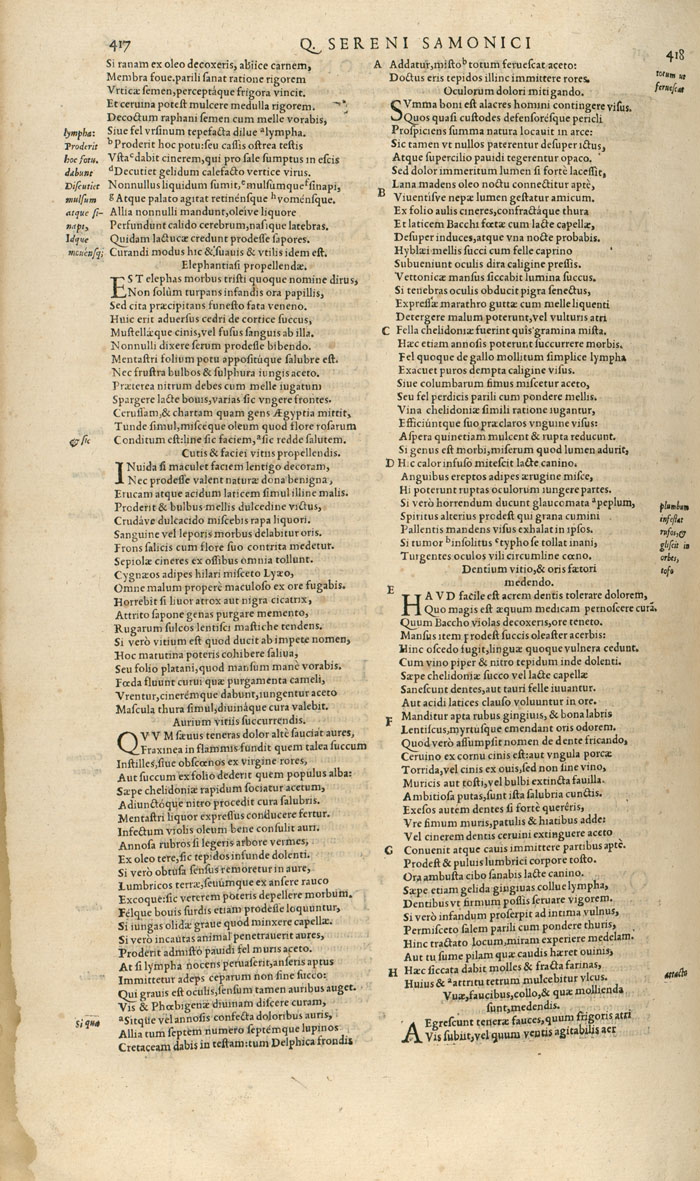 417
Q. SERENI SAMONICI
418
Si ranam ex oleo decoxeris, abiice carnem,
Membra foue. parili sanat ratione rigorem
Vrticæ semen, perceptáque frigora vincit.
Et ceruina potest mulcere medulla rigorem.
Decoctum raphani semen cum melle vorabis,
Siue fel vrsinum tepefacta dilue ᵃlympha.
ᵇProderit hoc potu: seu cassis ostrea testis
Vstaᶜdabit cinerem, qui pro sale sumptus in escis
ᵈDecutiet gelidum calefacto vertice virus.
Nonnullus liquidum sumit, ᵉmulsumqueᶠsinapi,
ᵍ Atque palato agitat retinénsque ʰvoménsque.
Allia nonnulli mandunt, oleive liquore
Perfundunt calido cerebrum, nasique latebras.
Quidam lactucæ credunt prodesse sapores.
Curandi modus hic & suauis & vtilis idem est.
lympha:
Proderit
hoc fotu.
dabunt
Discutiet
mulsum
atque si-
napi,
Idque
mouensq;
Elephantiasi propellendæ.
EST elephas morbus tristi quoque nomine dirus,
Non solùm turpans infandis ora papillis,
Sed cita præcipitans funesto fata veneno.
Huic erit aduersus cedri de cortice succus,
Mustellæque cinis, vel fusus sanguis ab illa.
Nonnulli dixere serum prodesse bibendo.
Mentastri folium potu appositúque salubre est.
Nec frustra bulbos & sulphura iungis aceto.
Præterea nitrum debes cum melle iugatum
Spargere lacte bouis, varias sic vngere frontes.
Cerussam, & chartam quam gens Ægyptia mittit,
Tunde simul, misceque oleum quod flore rosarum
Conditum est: line sic faciem, ᵃsic redde salutem.
& sic
Cutis & faciei vitiis propellendis.
INuida si maculet faciem lentigo decoram,
Nec prodesse valent naturæ dona benigna,
Erucam atque acidum laticem simul illine malis.
Proderit & bulbus mellis dulcedine victus,
Crudáve dulcacido miscebis rapa liquori.
Sanguine vel leporis morbus delabitur oris.
Frons salicis cum flore suo contrita medetur.
Sepiolæ cineres ex ossibus omnia tollunt.
Cygnæos adipes hilari misceto Lyæo,
Omne malum properè maculoso ex ore fugabis.
Horrebit si liuor atrox aut nigra cicatrix,
Attrito sapone genas purgare memento,
Rugarum sulcos lentisci mastiche tendens.
Si verò vitium est quod ducit ab impete nomen,
Hoc matutina poteris cohibere saliua,
Seu folio platani, quod mansum manè vorabis.
Fœda fluunt curui quæ purgamenta cameli,
Vrentur, cinerémque dabunt, iungentur aceto
Mascula thura simul, diuináque cura valebit.
Aurium vitiis succurrendis.
QVVM sæuus teneras dolor altè sauciat aures,
Fraxinea in flammis fundit quem talea succum
Instilles, siue obscœnos ex virgine rores,
Aut succum ex folio dederit quem populus alba:
Sæpe chelidoniæ rapidum sociatur acetum,
Adiunctóque nitro procedit cura salubris.
Mentastri liquor expressus conducere fertur.
Infectum violis oleum bene consulit auri.
Annosa rubros si legeris arbore vermes,
Ex oleo tere, sic tepidos infunde dolenti.
Si verò obtusa sensus remoretur in aure,
Lumbricos terræ, seuúmque ex ansere rauco
Excoque: sic veterem poteris depellere morbum.
Félque bouis surdis etiam prodesse loquuntur,
Si iungas olidæ graue quod minxere capellæ.
Si verò incautas animal penetrauerit aures,
Proderit admisto pauidi fel muris aceto.
At si lympha nocens peruaserit, anseris aptus
Immittetur adeps ceparum non sine succo:
Qui grauis est oculis, sensum tamen auribus auget.
Vis & Phœbigenæ diuinam discere curam,
ᵃSitque vel annosis confecta doloribus auris,
Allia tum septem numero septémque lupinos
Cretaceam dabis in testam: tum Delphica frondis
Si qua
A Addatur, mistoᵇ totum feruescat aceto:
Doctus eris tepidos illinc immittere rores.
totum ut
feruescat
Oculorum dolori mitigando.
SVmma boni est alacres homini contingere visus.
Quos quasi custodes defensorésque pericli
Prospiciens summa natura locauit in arce:
Sic tamen vt nullos paterentur desuper ictus,
Atque supercilio pauidi tegerentur opaco.
Sed dolor immeritum lumen si fortè lacessit,
Lana madens oleo noctu connectitur aptè,
B Viuentisve nepæ lumen gestatur amicum.
Ex folio aulis cineres, confractáque thura
Et laticem Bacchi fœtæ cum lacte capellæ,
Desuper induces, atque vna nocte probabis.
Hyblæi mellis succi cum felle caprino
Subueniunt oculis dira caligine pressis.
Vettonicæ mansus siccabit lumina succus.
Si tenebras oculis obducit pigra senectus,
Expressæ marathro guttæ cum melle liquenti
Detergere malum poterunt, vel vulturis atri
C Fella chelidoniæ fuerint quis gramina mista.
Hæc etiam annosis poterunt succurrere morbis.
Fel quoque de gallo mollitum simplice lympha
Exacuet puros dempta caligine visus.
Siue columbarum fimus miscetur aceto,
Seu fel perdicis parili cum pondere mellis.
Vina chelidoniæ simili ratione iugantur,
Efficiúntque suo præclaros vnguine visus:
Aspera quinetiam mulcent & rupta reducunt.
Si genus est morbi, miserum quod lumen adurit,
D Hic calor infuso mitescit lacte canino.
Anguibus ereptos adipes ærugine misce,
Hi poterunt ruptas oculorum iungere partes.
Si verò horrendum ducunt glaucomata ᵃpeplum,
Spiritus alterius prodest qui grana cumini
Pallentis mandens visus exhalat in ipsos.
Si tumor ᵇinsolitus ᶜtypho se tollat inani,
Turgentes oculos vili circumline cœno.
plumbum
infestat
rufos, &
gliscit in
orbes,
tofo
Dentium vitio, & oris fœtori
medendo.
E HAVD facile est acrem dentis tolerare dolorem,
Quo magis est æquum medicam pernoscere curā.
Quum Baccho violas decoxeris, ore teneto.
Mansus item prodest succis oleaster acerbis:
Hinc oscedo fugit, linguæ quoque vulnera cedunt.
Cum vino piper & nitro tepidum inde dolenti.
Sæpe chelidoniæ succo vel lacte capellæ
Sanescunt dentes, aut tauri felle iuuantur.
Aut acidi latices clauso voluuntur in ore.
F Manditur apta rubus gingiuis, & bona labris
Lentiscus, myrtusque emendant oris odorem.
Quod verò assumpsit nomen de dente fricando,
Ceruino ex cornu cinis est: aut vngula porcæ
Torrida, vel cinis ex ouis, sed non sine vino,
Muricis aut tosti, vel bulbi extincta fauilla.
Ambitiosa putas, sunt ista salubria cunctis.
Exesos autem dentes si fortè quereris,
Vre fimum muris, patulis & hiatibus adde:
Vel cinerem dentis ceruini extinguere aceto
G Conuenit atque cauis immittere partibus aptè.
Prodest & puluis lumbrici corpore tosto.
Ora ambusta cibo sanabis lacte canino.
Sæpe etiam gelida gingiuas collue lympha,
Dentibus vt firmum possis seruare vigorem.
Si verò infandum proserpit ad intima vulnus,
Permisceto salem parili cum pondere thuris,
Hinc tractato locum, miram experiere medelam.
Aut tu sume pilam quæ caudis hæret ouinis,
H Hæc siccata dabit molles & fracta farinas,
Huius & ᵃattritu tetrum mulcebitur vlcus.
attacto
Vuæ, faucibus, collo, & quæ mollienda
sunt, medendis.
AEgrescunt teneræ fauces, quum frigoris atri
Vis subiit, vel quum ventis agitabilis aer